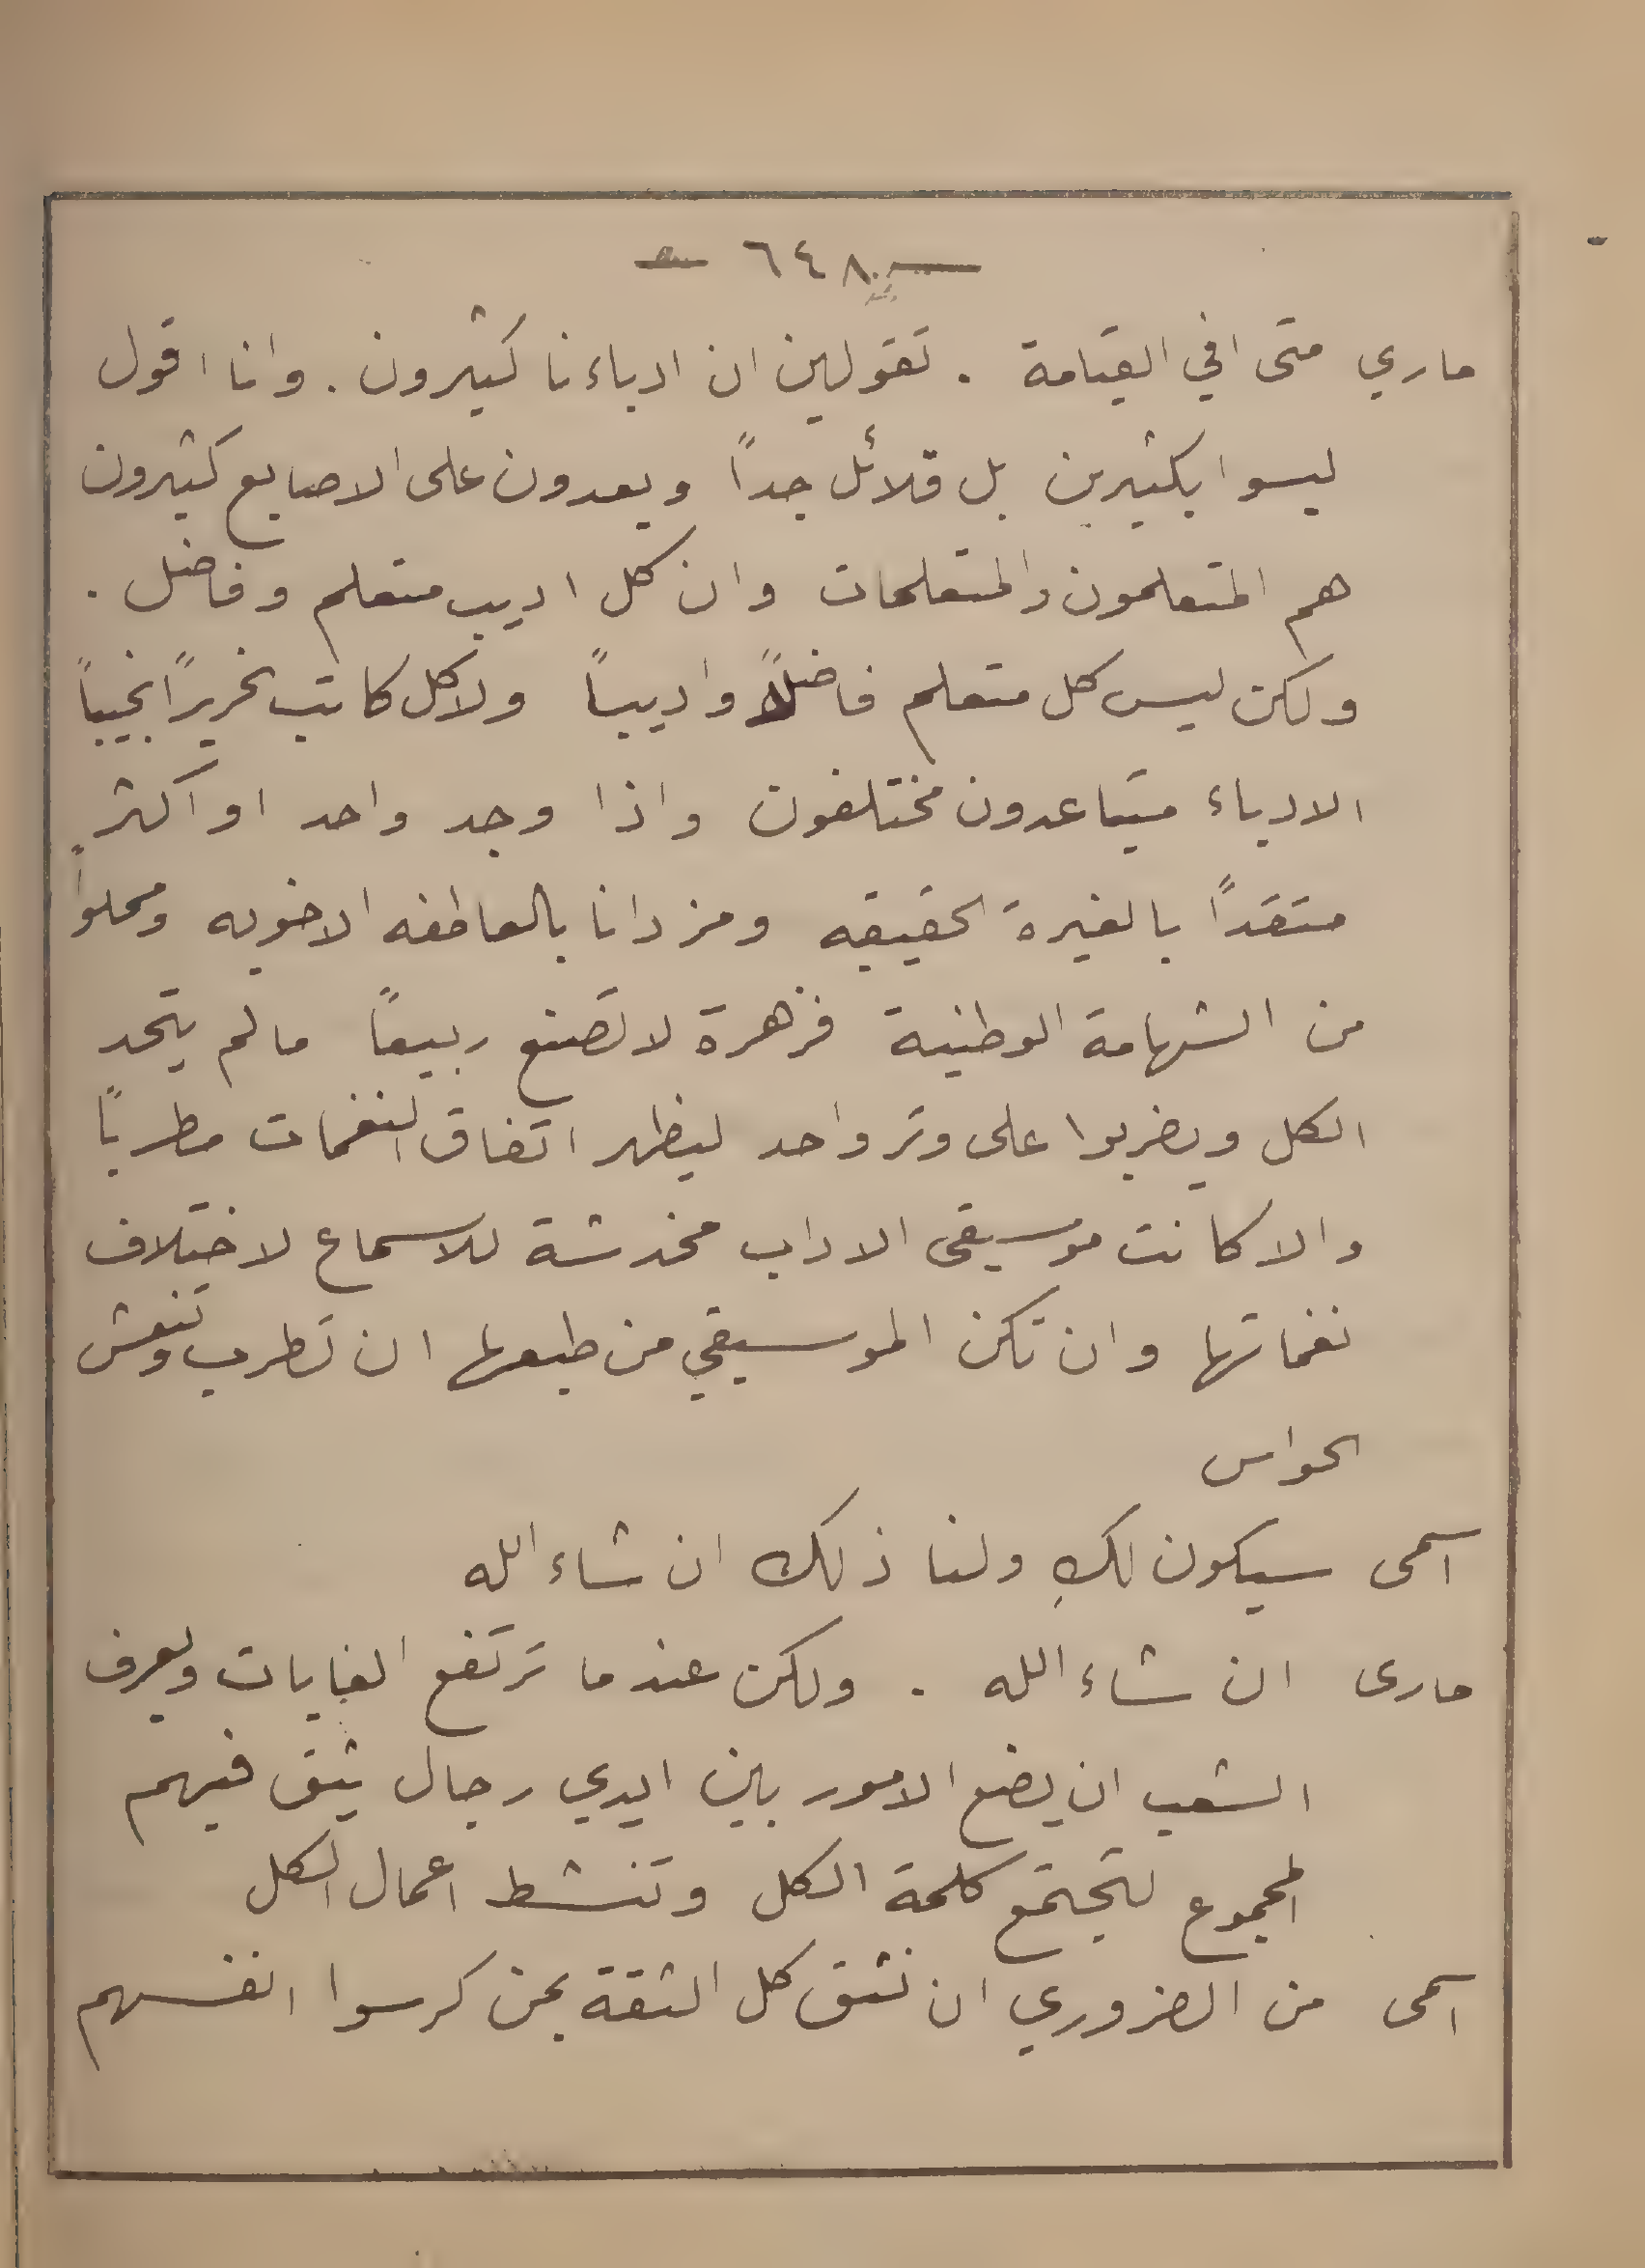 — ٦٤٨ —
ماري متى افي القيامة . تقولين ان ادباءنا كثيرون . وانا اقول
ليسوا بكثيرين بل قلائل جداً ويعدون على الاصابع كثيرون
هم المتعلمون والمتعلمات وان كل اديب متعلم وفاضل .
ولكن ليس كل متعلم فاضلاً واديباً ولا كل كاتب نحريراً نجيباً
الادباء متباعدون مختلفون واذا وجد واحد او اكثر
متقداً بالغيرة الحقيقيه ومزدانا بالعاطفه الاخويه ومملواً
من الشهامة الوطنية فزهرة لا تصنع ربيعاً مالم يتحد
الكل ويضربوا على وتر واحد ليظهر اتفاق النغمات مطرباً
والا كانت موسيقى الاداب مخدشة للاسماع لاختلاف
نغماتها وان تكن الموسيقي من طبعها ان تطرب وتنعش
الحواس
اسمى سيكون لكِ ولنا ذلك ان شاء الله
مارى ان شاء الله . ولكن عندما ترتفع الغايات ويعرف
الشعب ان يضع الامور بين ايدي رجال يثق فيهم
المجموع لتجتمع كلمة الكل وتنشط اعمال الكل
اسمى من الضروري ان نثق كل الثقة بمن كرسوا انفسهم